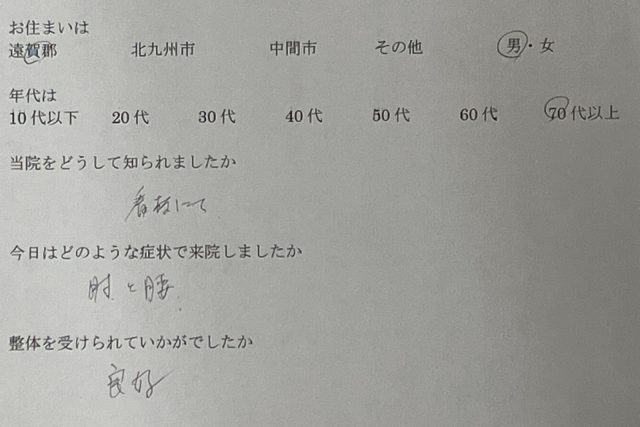 お住まいは
遠賀郡 北九州市 中間市 その他 男・女
年代は
10代以下 20代 30代 40代 50代 60代 70代以上
当院をどうして知られましたか
看板にて
今日はどのような症状で来院しましたか
肘と腰
整体を受けられていかがでしたか
良好